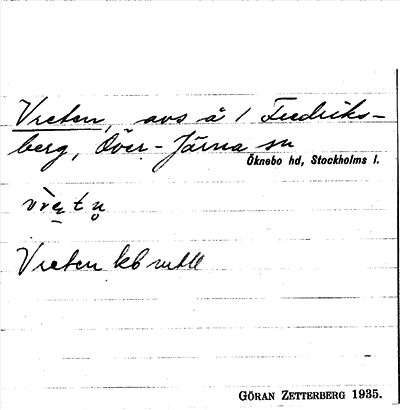 Vreten, avs å 1 Fredriks-
berg, Över-Järna sn
Öknebo hd, Stockholms l.
Vreten kb
GÖRAN ZETTERBERG 1935.